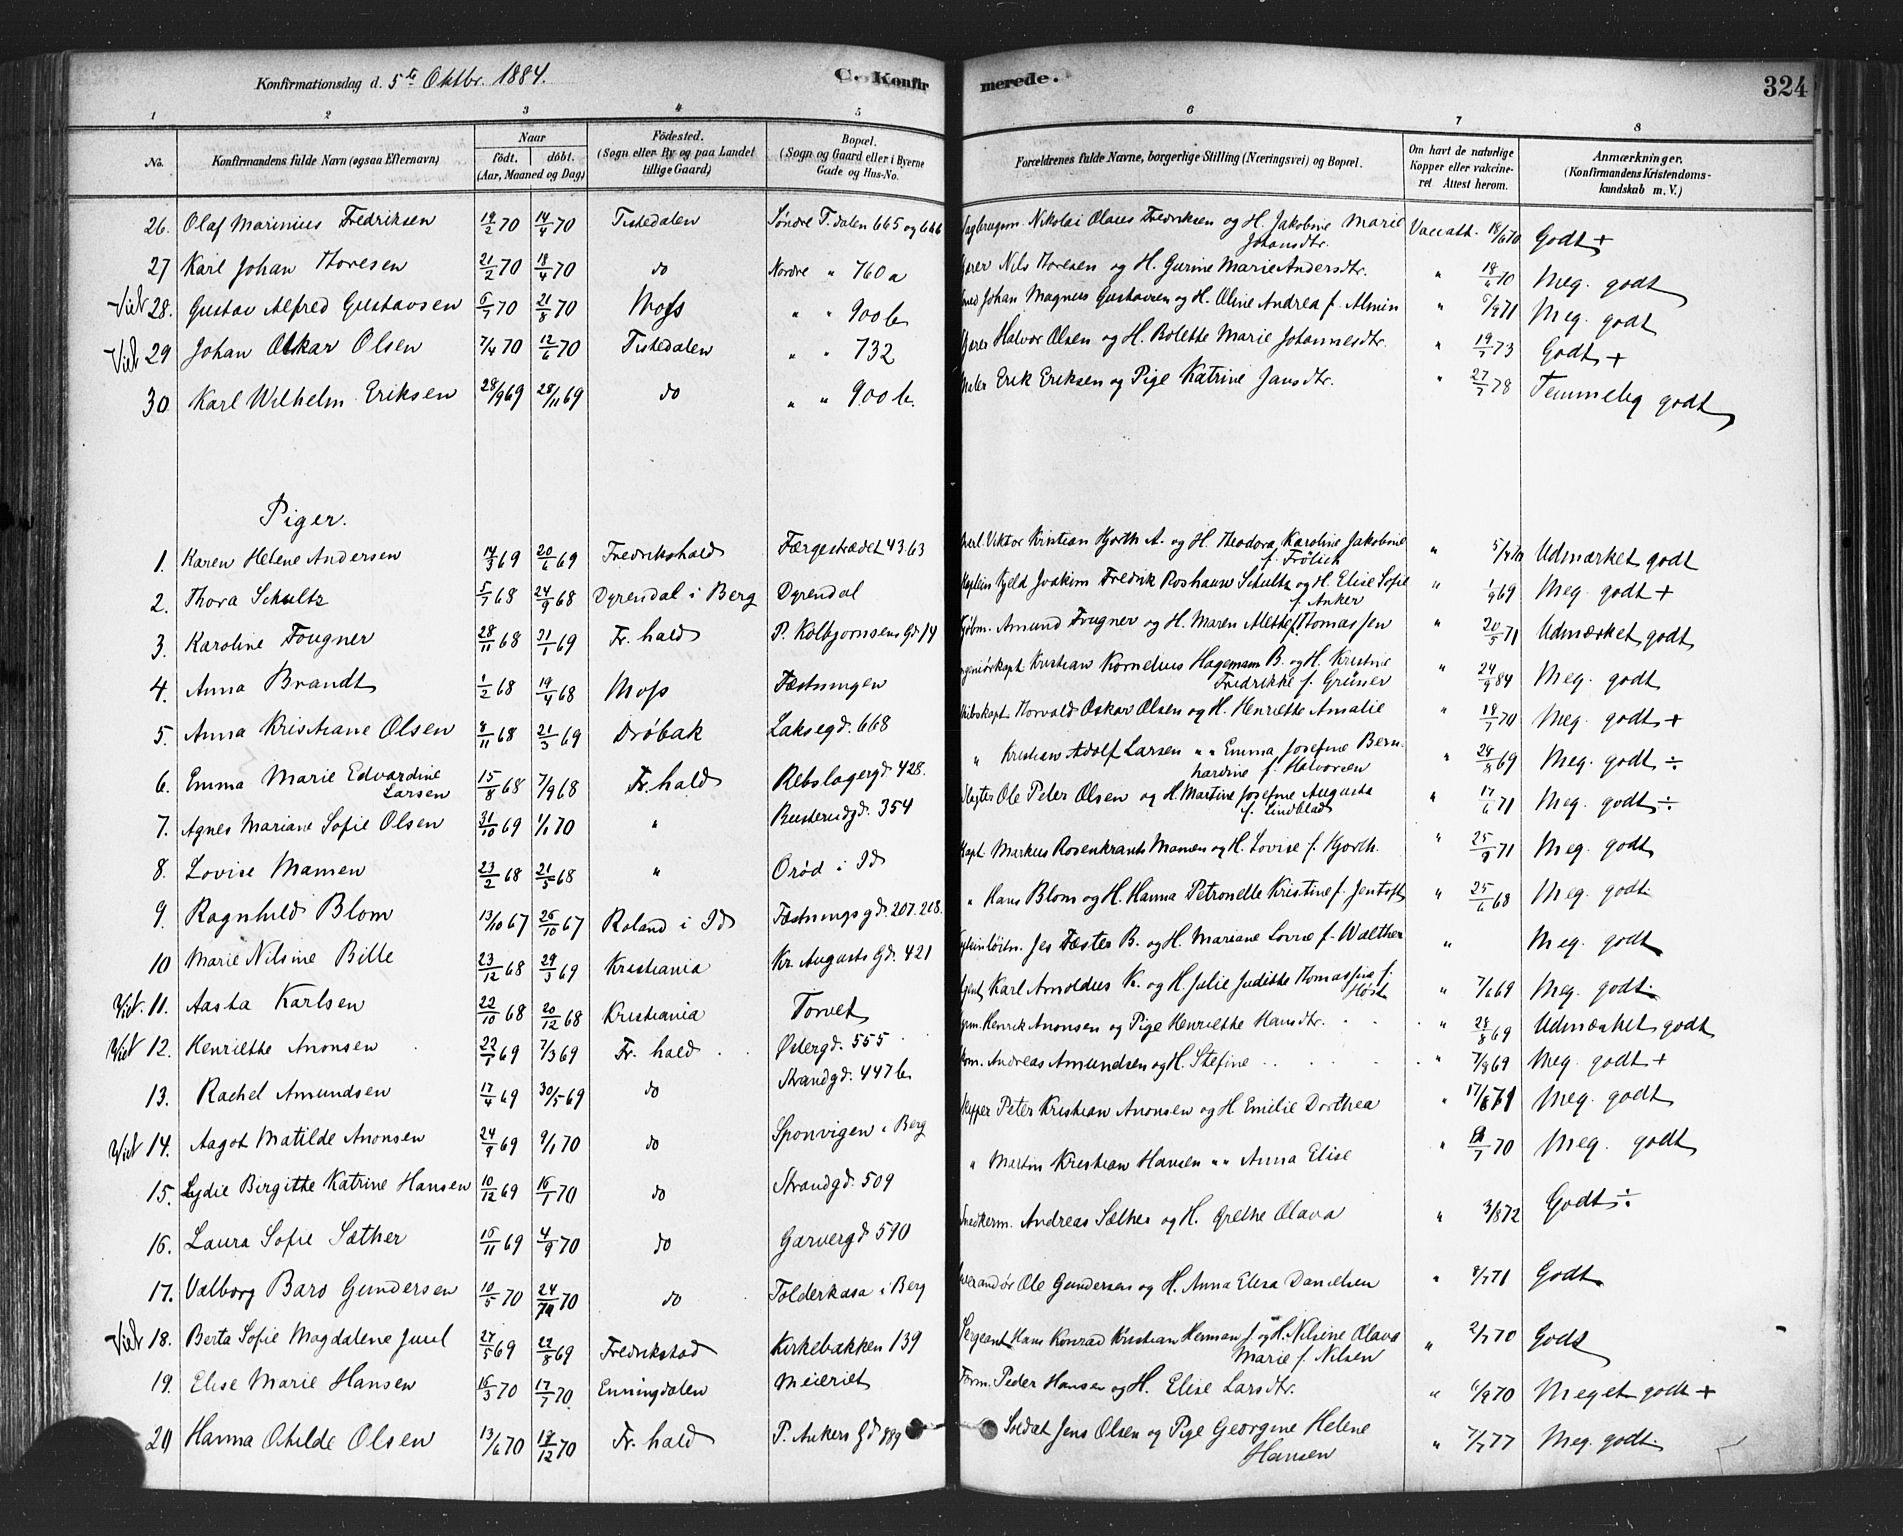 Konfirmationsdag d. 5te Oktbr. 1884.
C. Konfirmerede.
324
1 2 3 4 5 6 7 8
No.
Konfirmandens fulde Navn (ogsaa Efternavn)
Naar
födt. döbt.
(Aar, Maaned og Dag)
Födested.
(Sogn eller By og paa Landet
tillige Gaard)
Bopæl.
(Sogn og Gaard eller i Byerne
Gade og Hus-No.
Forældrenes fulde Navne, borgerlige Stilling (Næringsvei) og Bopæl.
Om havt de naturlige
Kopper eller vakcine-
ret Attest herom.
Anmærkninger.
(Konfirmandens Kristendoms-
kundskab m. V.)
26. Olaf Marinius Fredriksen 19/2 70 14/4 70 Tistedalen Søndre T.dalen 665 og 666 Nikolai Olaus Fredriksen og H. Jakobine Marie Vaccatt. 18/6 70 Godt +
Johansdtr.
27 Karl Johan Thoresen 21/2 70 18/4 70 do Nordre " 760 a Nils Thoresen og H. Gurine Marie Andersdtr. " 18/6 70 Meg. godt
Viet 28. Gustav Alfred Gustavsen 6/7 70 21/8 70 Moss " " 900 b Johan Magnus Gustavsen og H. Oline Andrea f. Almin " 6/9 71 Meg. godt
Viet 29 Johan Oskar Olsen 7/4 70 12/6 70 Tistedalen " " 732 Halvor Olsen og H. Bolette Marie Johannesdtr. " 19/7 73 Godt +
30 Karl Wilhelm Eriksen 28/9 69 28/11 69 do " " 900 b. Maler Erik Eriksen og Pige Katrine Jansdtr. " 27/7 78 Temmelig godt
Piger.
1. Karen Helene Andersen 14/3 69 20/6 69 Fredrikshald Færgestrædet 43.63 Viktor Kristian Hjorth A. og H. Theodora Karoline Jakobine " Udmærket godt
f. Frölich
2. Thora Schultz 5/7 68 24/9 68 Dyrendal i Berg Dyrendal Kaptein Fjeld Joakim Fredrik Roshauw Schultz og H. Elise Sofie " 1/9 69 Meg. godt +
f. Anker
3. Karoline Fougner 28/11 68 31/1 69 Fr. hald P. Kolbjørnsens Gd 14 Kjöbm. Amund Fougner og H. Maren Alethe f. Thomassen " 20/5 71 Udmærket godt
4. Anna Brandt 1/2 68 19/4 68 Moss Fæstningen Ingeniörkapt. Kristian Kornelius Hagemann B. og H. Kristine " 24/9 84 Meg. godt
Fredrikke f. Grüner
5. Anna Kristiane Olsen 8/11 68 21/3 69 Dröbak Laksegd. 668 Skibskapt Thorvald Oskar Olsen og H. Henriette Amalie " 18/7 70 Meg. godt +
6. Emma Marie Edvardine 15/8 68 7/9 68 Fr. hald Rebslagergd. 428. " Kristian Adolf Larsen " " Emma Josefine Bern- " 24/8 69 Meg. godt ÷
Larsen hardine f. Halvorsen
7. Agnes Mariane Sofie Olsen 31/10 69 1/1 70 " 354 Slagter Ole Peter Olsen og H. Martine Josefine Augusta " 17/6 71 Meg. godt ÷
f. Lindblad
8. Lovise Mamen 23/2 68 21/5 68 " Oröd i Id Kapt. Markus Rosenkrants Mamen og H. Lovise f. Hjorth. " 25/9 71 Meg. godt
9. Ragnhild Blom 13/10 67 26/10 67 Roland i Id Fæstningsgd. 207.208. " Hans Blom og H. Hanna Petronelle Kristine f. Jentoft " 25/6 68 Meg. godt
10 Marie Nilsine Bille 23/12 68 29/3 69 Kristiania Kr. Augusts Gd. 421 Jes Fæster B. og H. Mariane Lovise f. Walther " Meg. godt
Viet. 11. Aasta Karlsen 22/10 68 20/12 68 Kristiania Torvet Agent Karl Arnoldus K. og H. Julie Judithe Thomassine f. " 7/6 69 Meg. godt.
Höst
Viet 12. Henriette Anonsen 22/1 69 7/3 69 Fr. hald Østergd. 555 Henrik Anonsen og Pige Henriette Hansdtr. " 28/8 69 Udmærket godt
13. Rachel Amundsen 17/4 69 30/5 69 do Strandgd. 447 b Andreas Amundsen og H. Stefine " 7/8 69 Meg. godt +
Viet 14. Aagot Matilde Anonsen 24/9 69 9/1 70 do Sponvigen i Berg Skipper Peter Kristian Anonsen og H. Emilie Dorthea " 17/8 71 Meg. godt
15. Lydie Birgitte Katrine Hansen 10/12 69 16/1 70 do Strandgd. 509 " Martin Kristian Hansen " " Anna Elise " 70 Meg. godt
16. Laura Sofie Sæther 15/11 69 4/9 70 do Garvergd 590 Snedkerm. Andreas Sæther og H. Grethe Olava " 3/8 72 Godt ÷
17. Valborg Baro Gundersen 10/5 70 24/10 70 do Tolderkasa i Berg Ole Gundersen og H. Anna Elisa Danielsen " 71 Godt
Viet 18. Berta Sofie Magdalene Juul 27/5 69 22/8 69 Fredrikstad Kirkebakken 139 Sergeant Hans Konrad Kristian Herman J. og H. Nilsine Olava " 2/7 70 Godt
Marie f. Nilsen
19. Elise Marie Hansen 16/3 70 17/7 70 Enningdalen Meieriet Form. Peder Hansen og H. Elise Larsdtr. " 6/9 70 Meget godt +
20 Hanna Otilde Olsen 13/6 70 18/12 70 Fr. hald P. Ankers Gd 889 Soldat Jens Olsen og Pige Georgine Helene " 7/7 77 Meg. godt.
Hansen